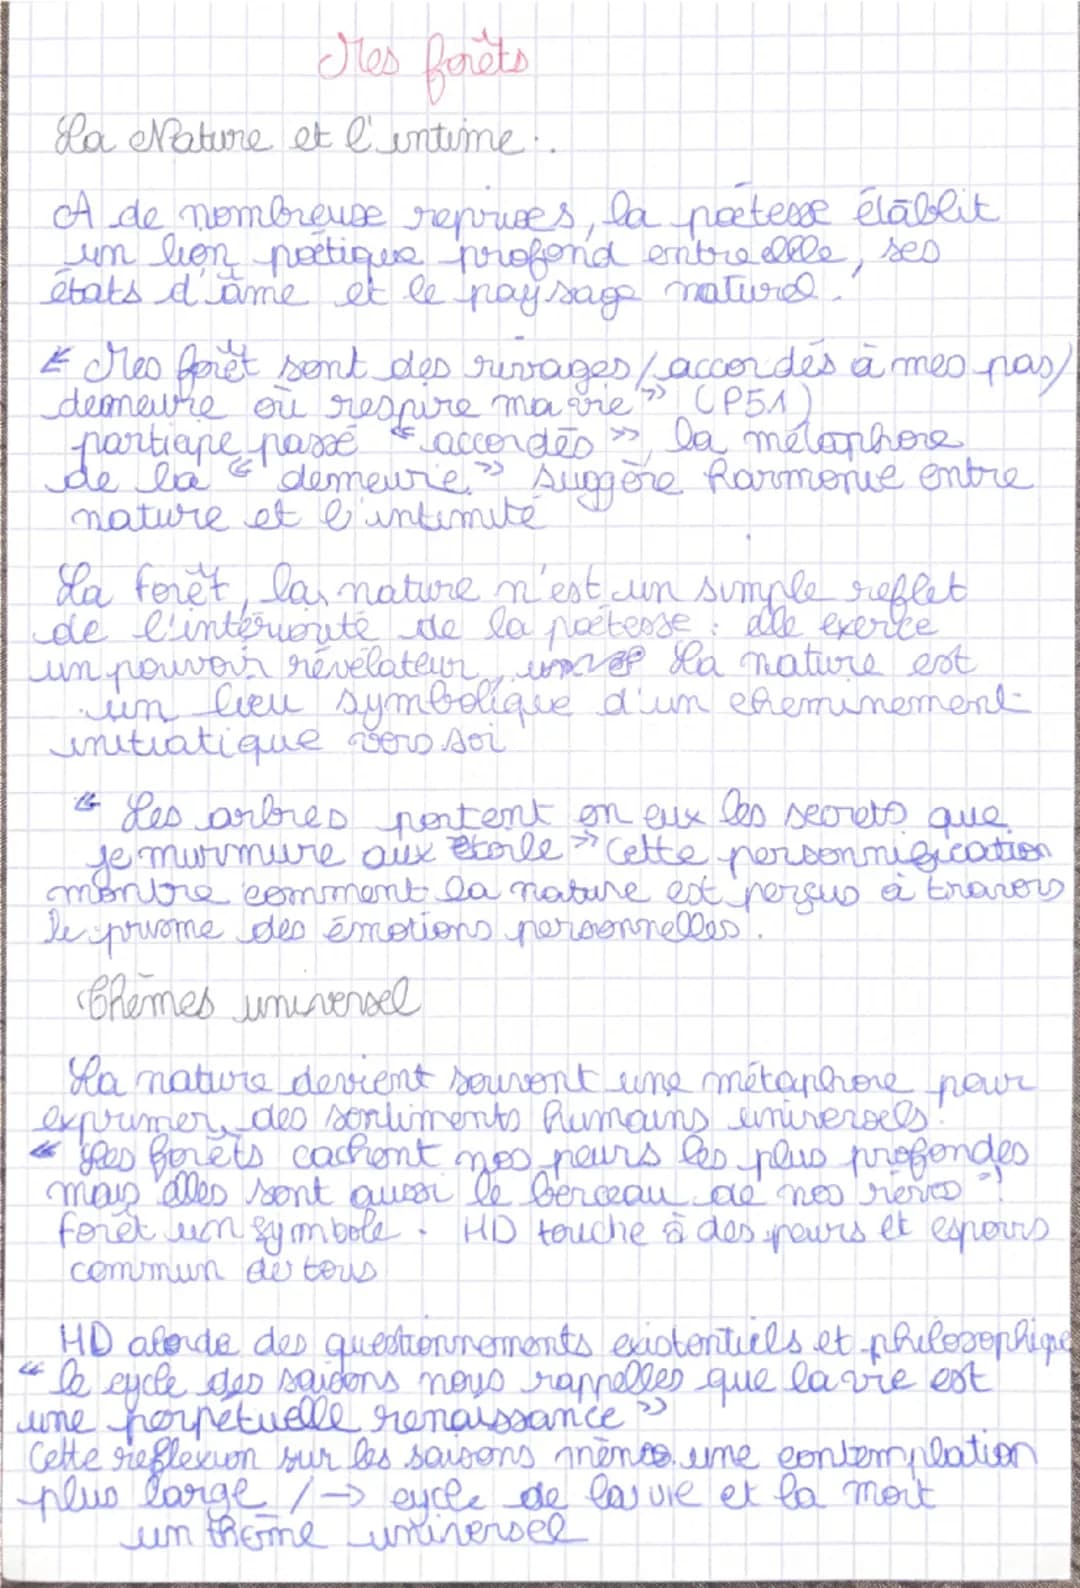 Mes forêts
La Nature et l'intime :
A de nombreuse reprises, la poétesse établit
un lien poétique profond entre elle, ses
états d'âme et le paysage naturel.
« Mes forêt sont des rivages / accordés à mes pas /
demeure où respire ma vie » (P51)
participe passé « accordés », la métaphore
de la « demeure » suggère harmonie entre
nature et l'intimité
La forêt, la nature n'est un simple reflet
de l'intériorité de la poétesse : elle exerce
un pouvoir révélateur, La nature est
un lieu symbolique d'un cheminement
initiatique vers soi
« Les arbres portent en eux les secrets que
je murmure aux étoile » Cette personnification
montre comment la nature est perçus à travers
le prisme des émotions personnelles.
Thèmes universel
La nature devient souvent une métaphore pour
exprimer des sentiments humains universels.
« Les forêts cachent nos peurs les plus profondes
mais elles sont aussi le berceau de nos rêves ».
Forêt un symbole . HD touche à des peurs et espoirs
commun de tous
HD aborde des questionnements existentiels et philosophique
« le cycle des saisons nous rappelles que la vie est
une perpétuelle renaissance »
Cette réflexion sur les saisons mènes une contemplation
plus large / → cycle de la vie et la mort
un thème universel